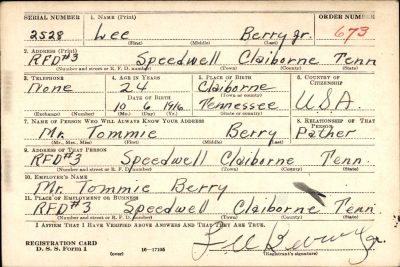 SERIAL NUMBER 1. NAME (Print) ORDER NUMBER
2528 Lee Berry Jr. 673
(First) (Middle) (Last)
2. ADDRESS (Print)
RFD#3 Speedwell Claiborne Tenn
(Number and street or R. F. D. number) (Town) (County) (State)
3. TELEPHONE 4. AGE IN YEARS 5. PLACE OF BIRTH 6. COUNTRY OF CITIZENSHIP
None 24 Claiborne
DATE OF BIRTH (Town or county)
10 6 1916 Tennessee U.S.A.
(Exchange) (Number) (Mo.) (Day) (Yr.) (State or country)
7. NAME OF PERSON WHO WILL ALWAYS KNOW YOUR ADDRESS 8. RELATIONSHIP OF THAT PERSON
Mr. Tommie Berry Father
(Mr., Mrs., Miss) (First) (Middle) (Last)
9. ADDRESS OF THAT PERSON
RFD#3 Speedwell Claiborne Tenn.
(Number and street or R. F. D. number) (Town) (County) (State)
10. EMPLOYER'S NAME
Mr. Tommie Berry
11. PLACE OF EMPLOYMENT OR BUSINESS
RFD#3 Speedwell Claiborne Tenn.
(Number and street or R. F. D. number) (Town) (County) (State)
I AFFIRM THAT I HAVE VERIFIED ABOVE ANSWERS AND THAT THEY ARE TRUE.
Lee Berry Jr.
REGISTRATION CARD
D. S. S. Form 1 (over) 16—17105 (Registrant's signature)